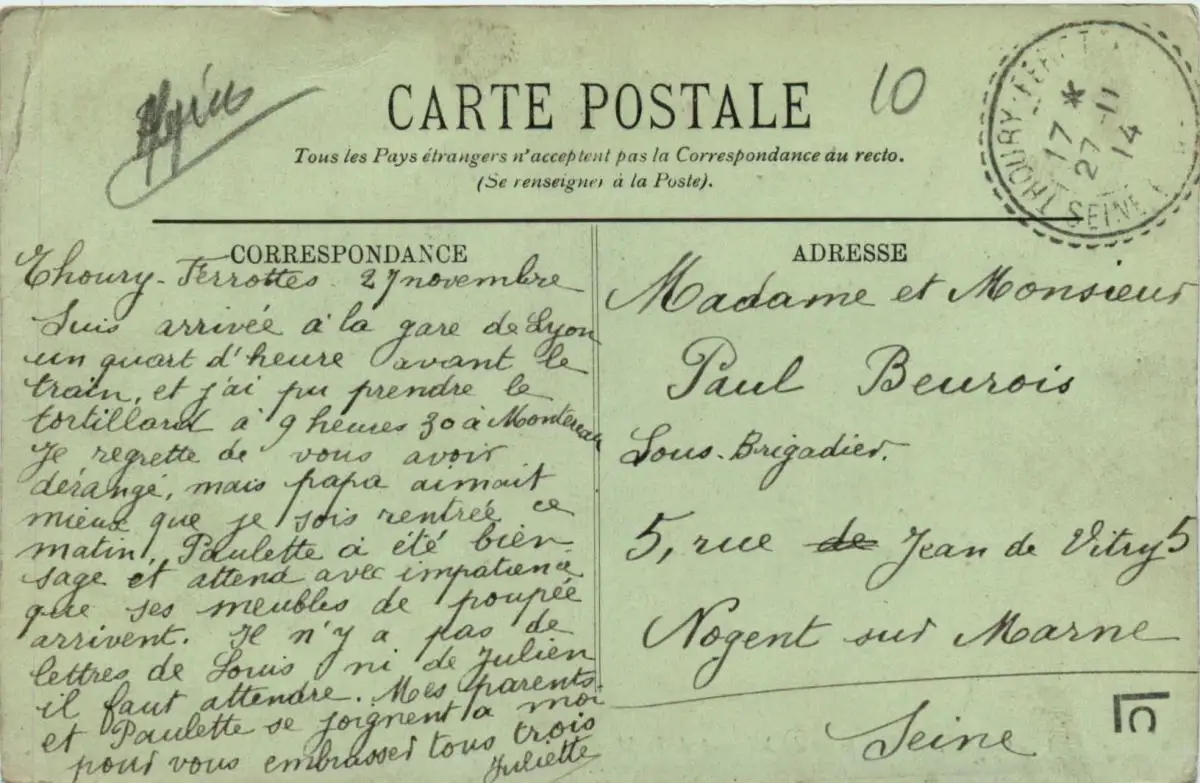 10
CARTE POSTALE
Tous les Pays étrangers n'acceptent pas la Correspondance au recto.
(Se renseigner à la Poste).
THOURY-FERROTTES
17 *
27 -11
14
SEINE
CORRESPONDANCE
Thoury-Ferrottes 27 novembre
Suis arrivée à la gare de Lyon
un quart d'heure avant le
train, et j'ai pu prendre le
tortillard à 9 heures 30 à Montereau
Je regrette de vous avoir
dérangé, mais papa aimait
mieux que je sois rentrée ce
matin, Paulette a été bien
sage et attend avec impatience
que ses meubles de poupée
arrivent. Il n'y a pas de
lettres de Louis ni de Julien
il faut attendre. Mes parents
et Paulette se joignent à moi
pour vous embrasser tous trois
Juliette
ADRESSE
Madame et Monsieur
Paul Beurois
Sous-Brigadier.
5, rue de Jean de Vitry 5
Nogent sur Marne
Seine